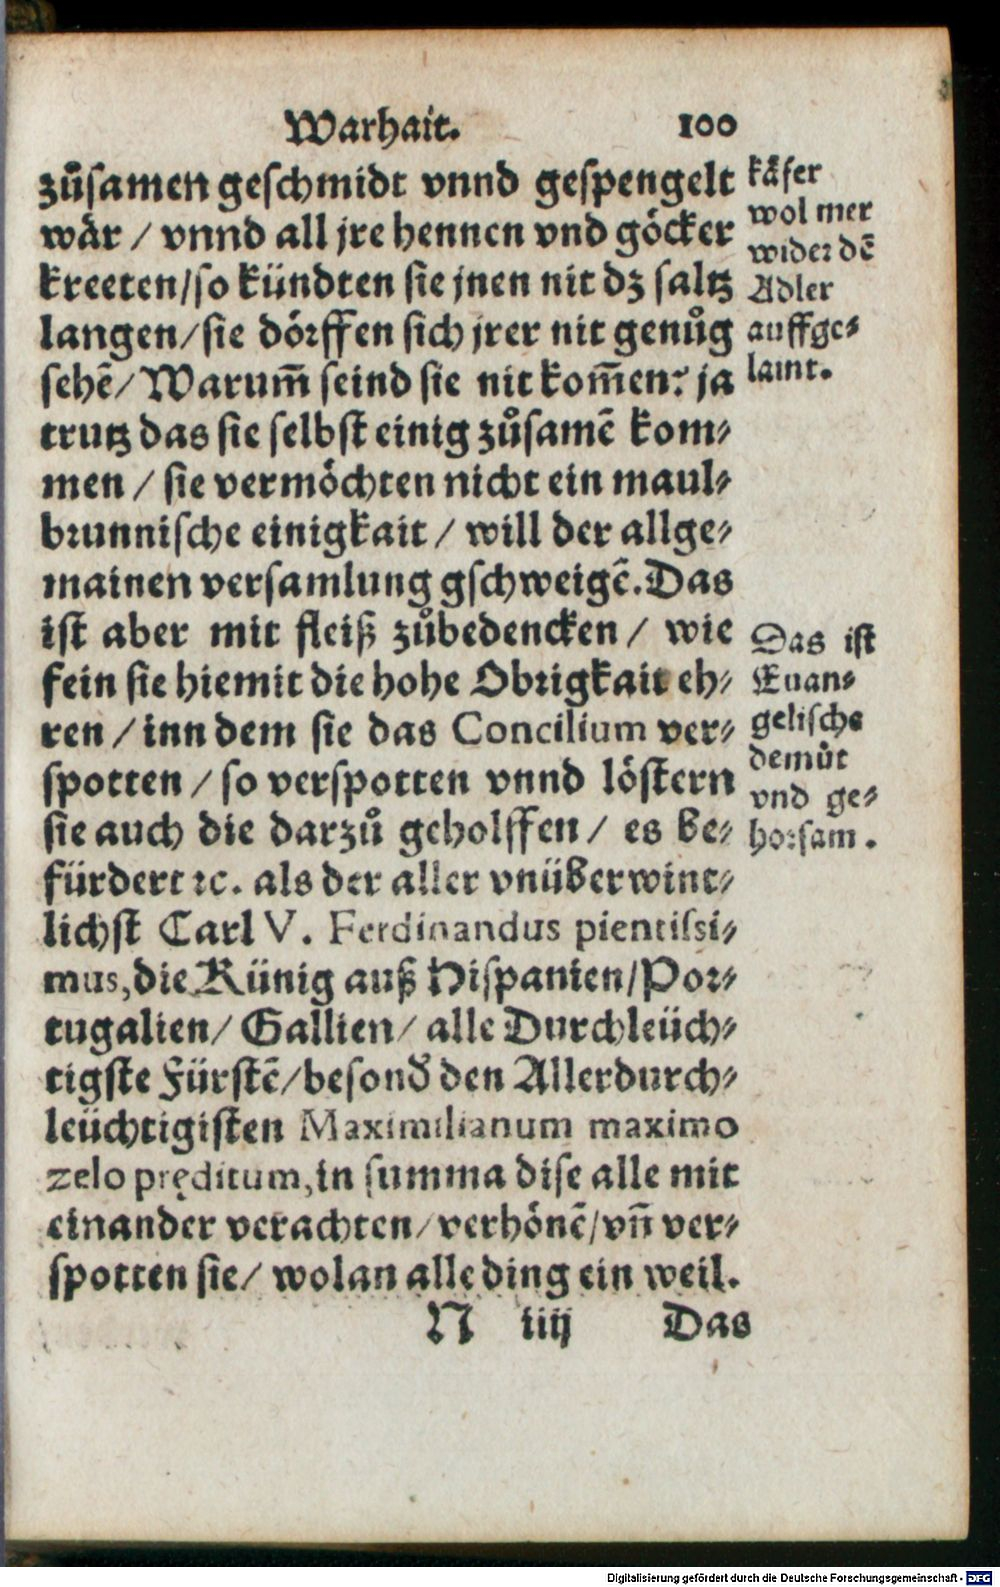 Warhait. 100
zůsamen geschmidt vnnd gespengelt
wår / vnnd all jre hennen vnd göcker
kreeten / so kündten sie jnen nit dz saltz
langen / sie dörffen sich jrer nit genůg
sehē / Warum̄ seind sie nit kom̄en? ja
trutz das sie selbst einig zůsamē kom⸗
men / sie vermöchten nicht ein maul⸗
brunnische einigkait / will der allge⸗
mainen versamlung gschweigē. Das
ist aber mit fleiß zůbedencken / wie
fein sie hiemit die hohe Obrigkait eh⸗
ren / inn dem sie das Concilium ver⸗
spotten / so verspotten vnnd löstern
sie auch die darzů geholffen / es be⸗
fürdert ꝛc. als der aller vnüberwint⸗
lichst Carl V. Ferdinandus pientissi⸗
mus, die Künig auß Hispanien / Por⸗
tugalien / Gallien / alle Durchleüch⸗
tigste Fürstē / besond̕ den Allerdurch⸗
leüchtigisten Maximilianum maximo
zelo pręditum, in summa dise alle mit
einander verachten / verhönē / vn̄ ver⸗
spotten sie / wolan alle ding ein weil.
N iiij Das
kåfer
wol mer
wider dē
Adler
auffge⸗
laint.
Das ist
Euan⸗
gelische
demůt
vnd ge⸗
horsam.
Digitalisierung gefördert durch die Deutsche Forschungsgemeinschaft - DFG